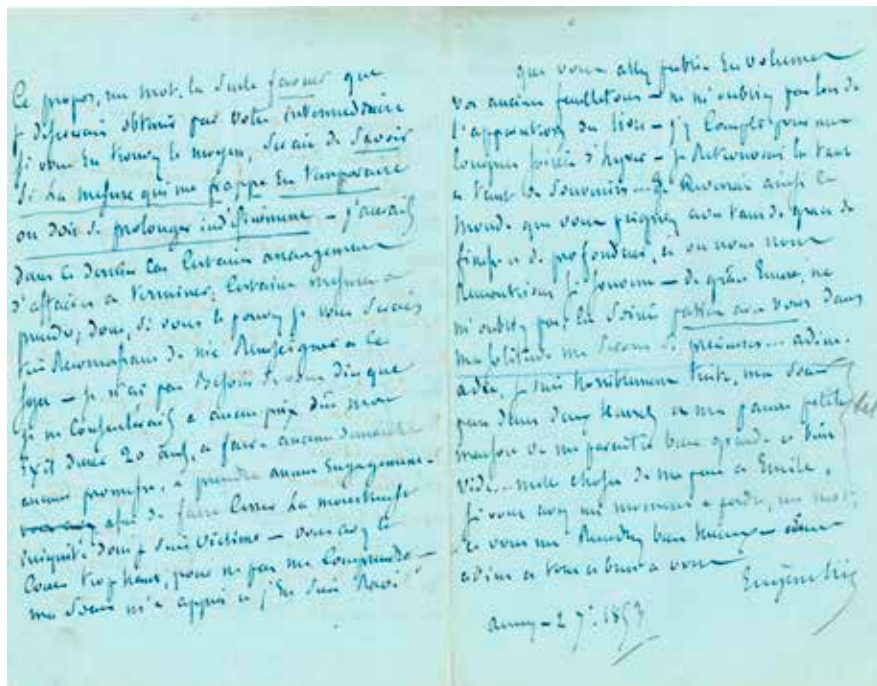 Ce propos, un mot, la seule faveur que
je désirerais obtenir par votre intermédiaire
si vous en trouvez le moyen, serait de savoir
si la mesure qui me frappe est temporaire
ou doit se prolonger indéfiniment – j'aurais
dans ce dernier cas certains arrangemens
d'affaires a terminer, certaines mesures a
prendre; donc, si vous le pouvez je vous serais
très reconnaissant de me renseigner a ce
sujet – je n'ai pas besoin de vous dire que
je ne consentirais a aucun prix dut mon
exil durer 20 ans, a faire aucune démarche
aucune promesse, a prendre aucun engagement
afin de faire cesser la monstrueuse
iniquité dont je suis victime – vous avez le
coeur trop haut, pour ne pas me comprendre –
ma soeur m'a appris et j'en suis ravi
que vous allez publier en volumes
vos anciens feuilletons – ne m'oubliez pas lors de
l'apparition du livre – j'y compte pour mes
longues soirées d'hyver – je retrouverai la tant
et tant de souvenirs... je reverrai ainsi le
monde que vous peignez avec tant de grace de
finesse et de profondeur, et ou nous nous
rencontrions si souvent – de grâce encore, ne
m'oubliez pas, la soirée passée avec vous dans
ma solitude me sera si précieuse... adieu
adieu, je suis horriblement triste, ma soeur
part dans deux heures et ma pauvre petite
maison va me paraître bien grande et bien
vide... mille choses de ma part a Emile,
si vous avez un moment a perdre, un mot
de vous me rendrez bien heureux –
adieu et tout a bien a vous
Eugène Sue
annecy – 27 1853